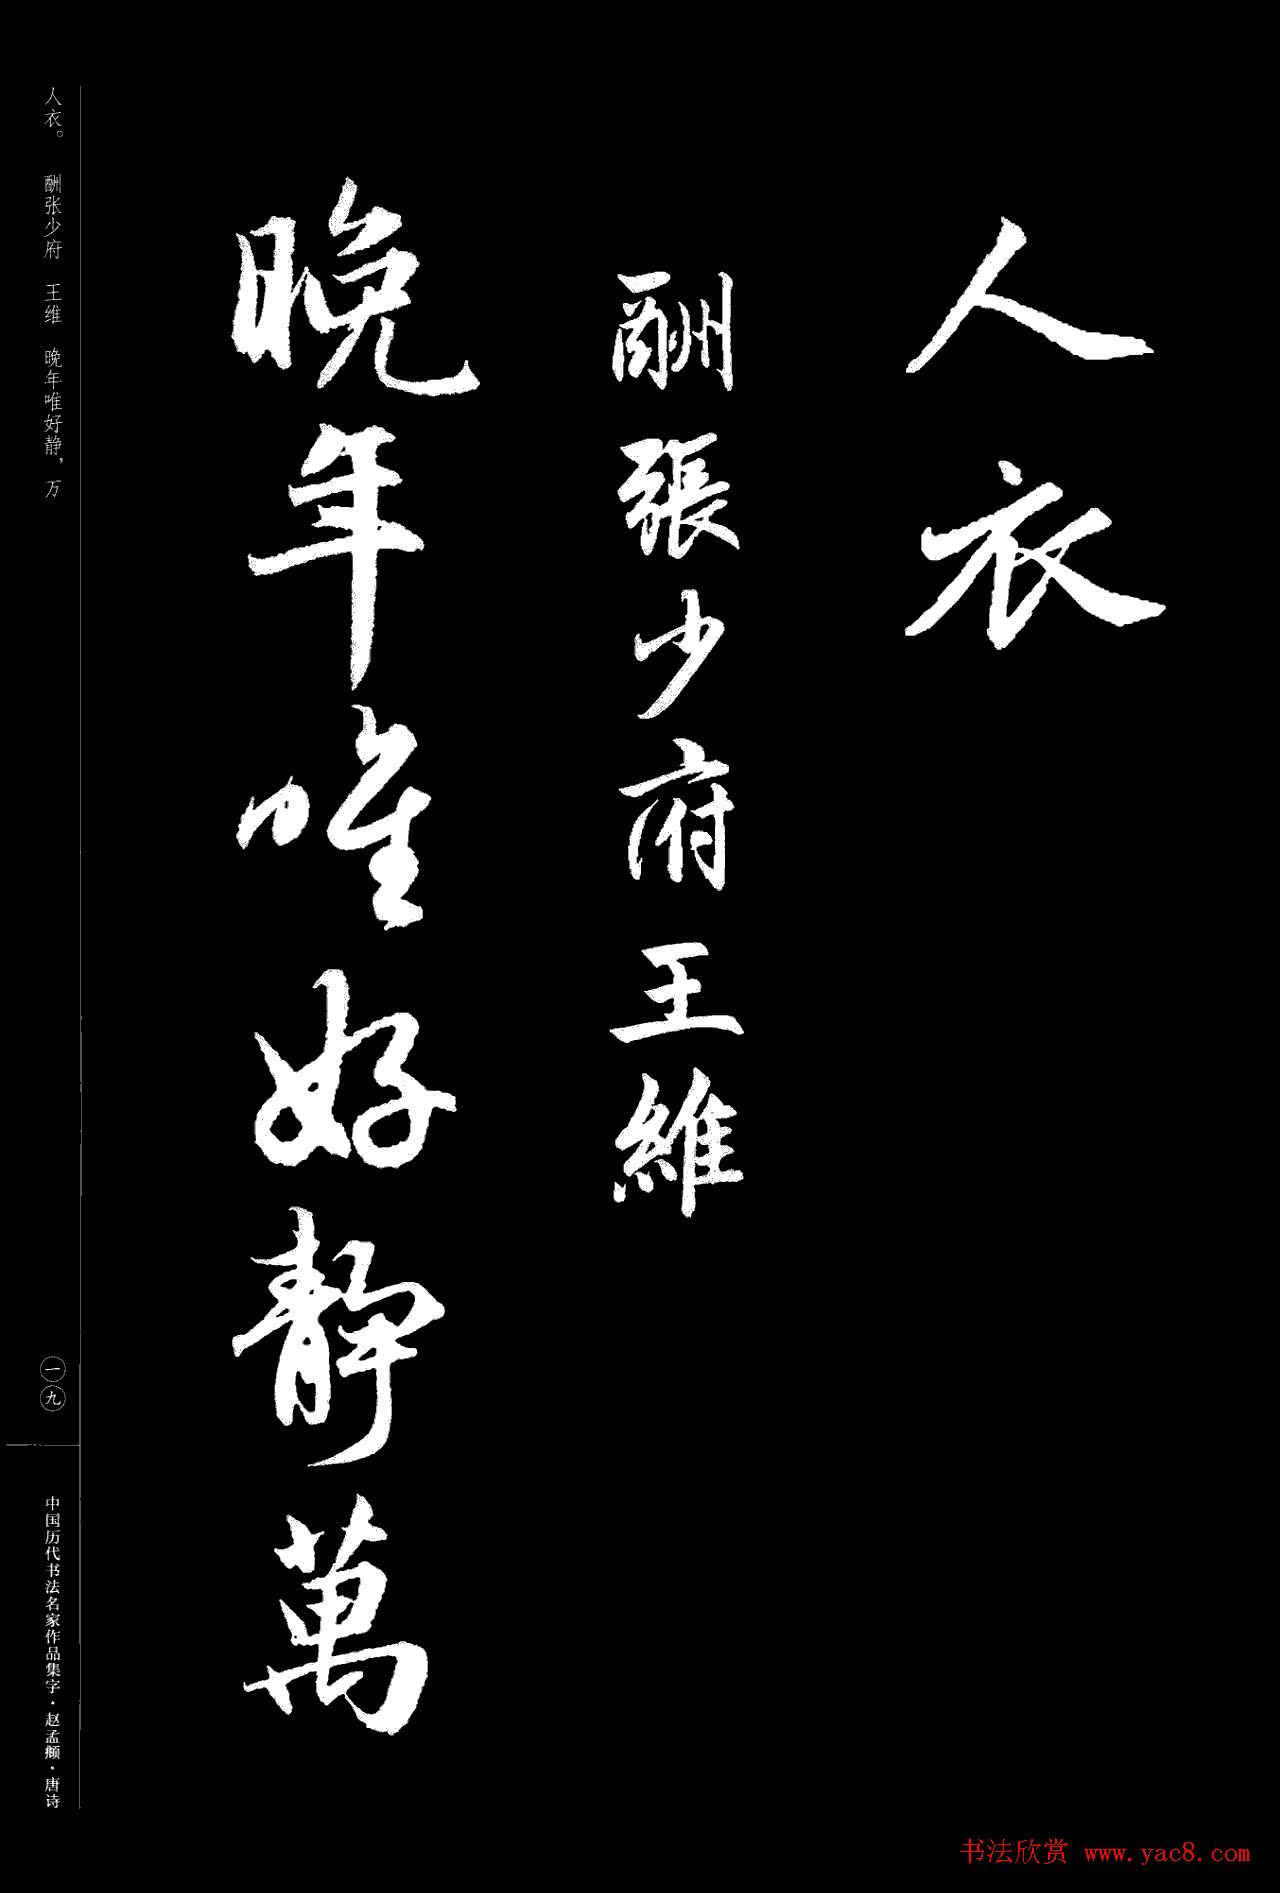 人衣
酬張少府王維
晚年唯好靜萬
人衣。　酬张少府　王维　晚年唯好静，万
一九
中国历代书法名家作品集字·赵孟頫·唐诗
书法欣赏 www.yac8.com